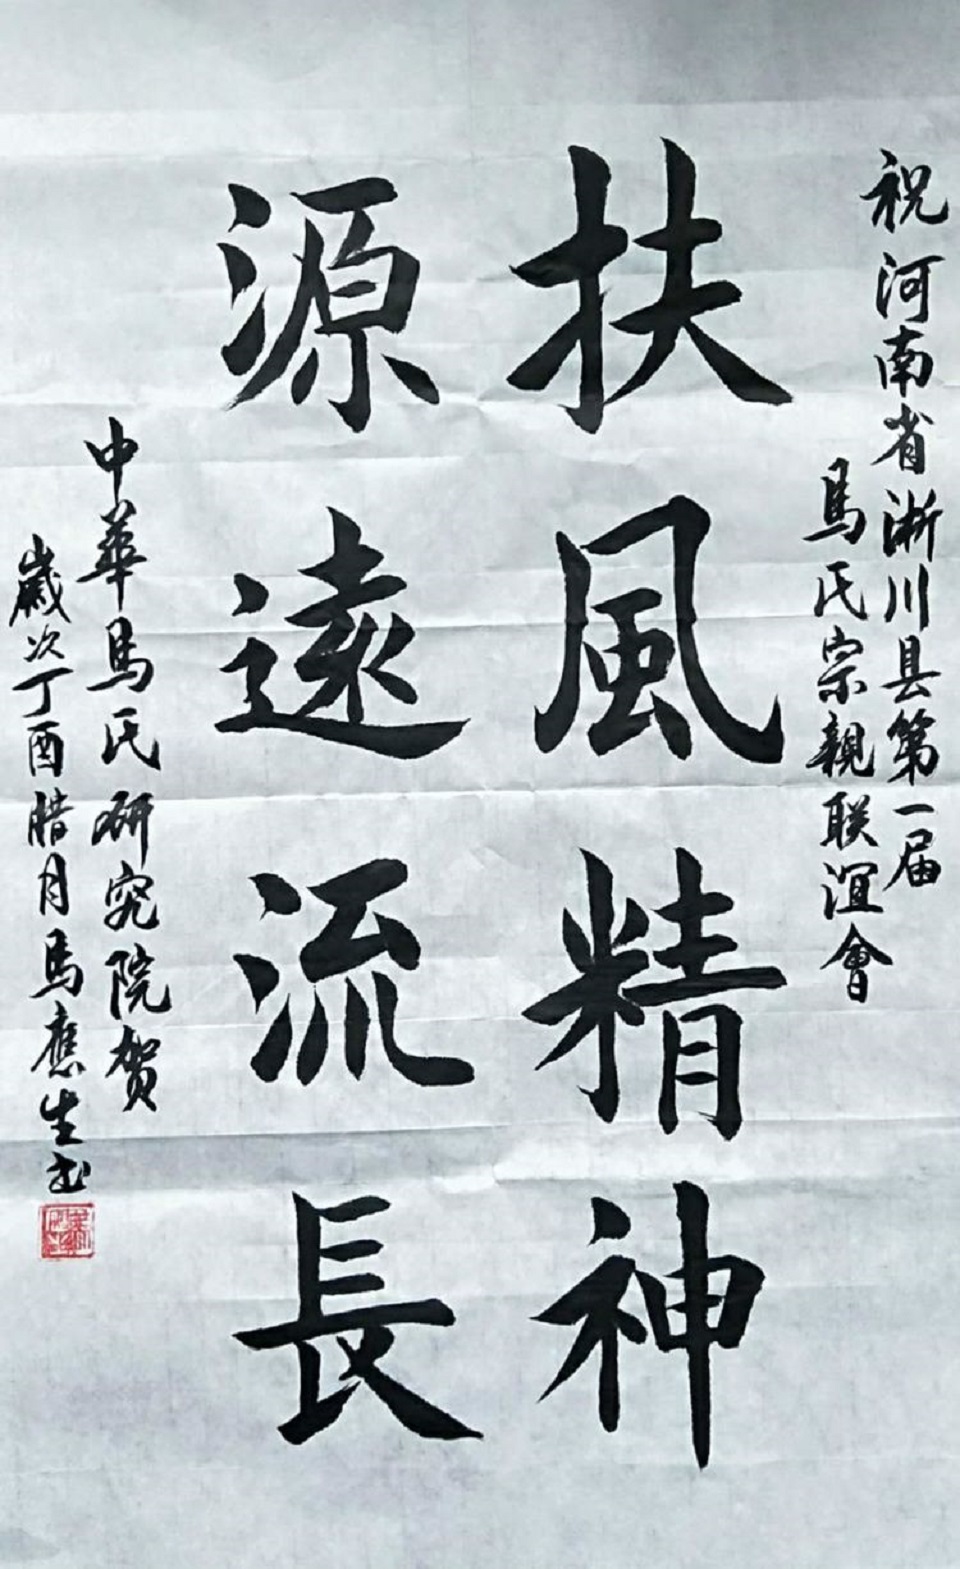 祝河南省淅川县第一届
馬氏宗親联誼會
扶風精神
源遠流長
中華馬氏研究院贺
歲次丁酉腊月馬應生书